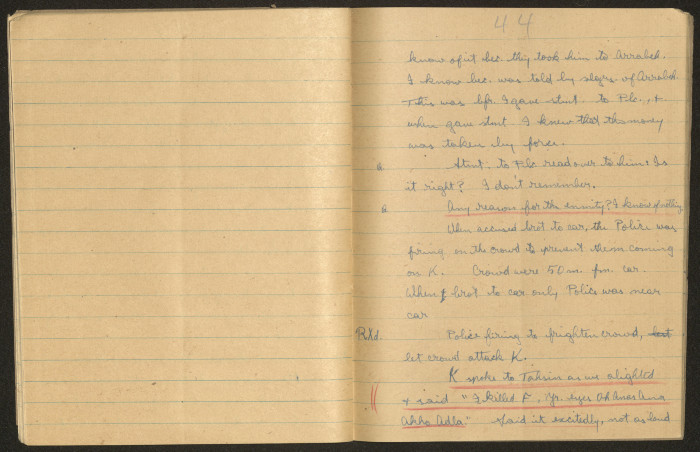 44
know of it bec. they took him to Arrabeh.
I know bec. was told by slgrs. of Arrabeh.
This was bfr. I gave stmt. to Plc., +
when gave stmt I knew that this money
was taken by force.
Q. Stmt. to Plc read over to him: Is
it right? I don't remember.
Q. Any reason for the enmity? I know of nothing
When accused brot to car, the Police was
firing on the crowd to prevent them coming
on K. Crowd were 50 m. fm. car.
When brot to car only Police was near
car
R.Xd. Police firing to frighten crowd,
let crowd attack K.
K spoke to Tahsin as we alighted
+ said "I killed F. Yr. eyes Ana
Akhu Adla" Said it excitedly, not as